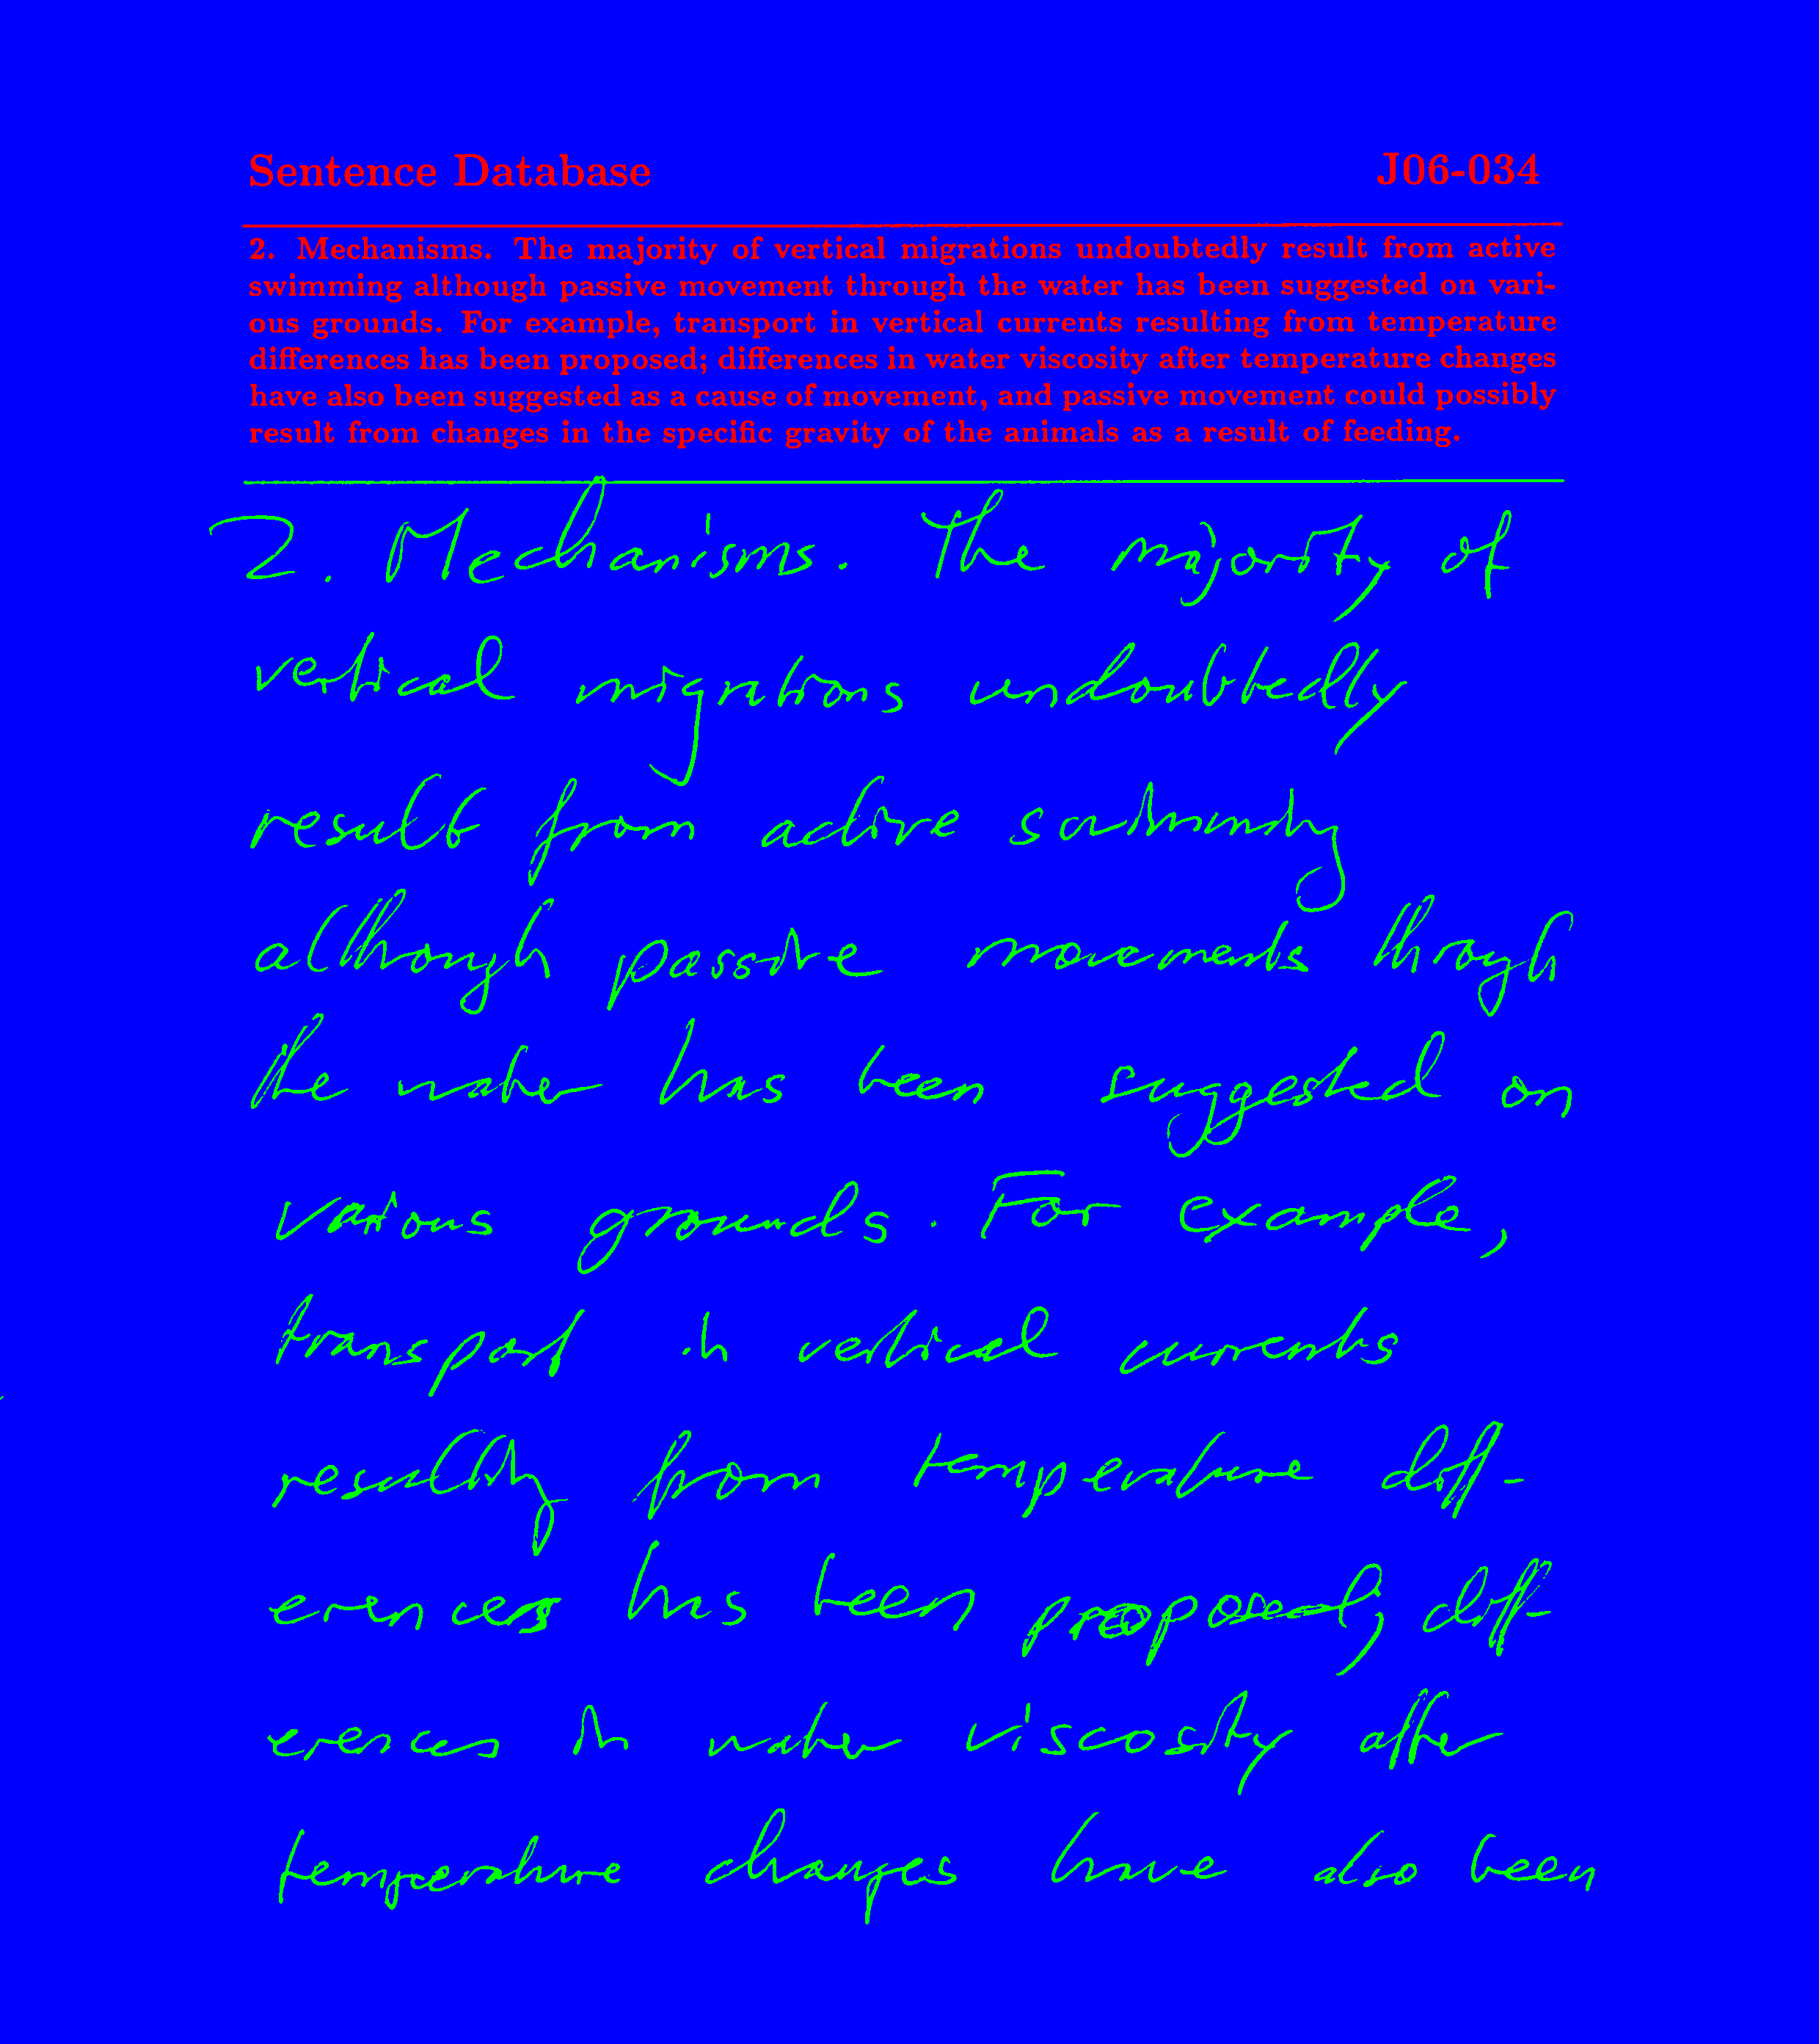 Sentence Database J06-034
2. Mechanisms. The majority of vertical migrations undoubtedly result from active
swimming although passive movement through the water has been suggested on vari-
ous grounds. For example, transport in vertical currents resulting from temperature
differences has been proposed; differences in water viscosity after temperature changes
have also been suggested as a cause of movement, and passive movement could possibly
result from changes in the specific gravity of the animals as a result of feeding.
2. Mechanisms. The majority of
vertical migrations undoubtedly
result from active swimming
although passive movements through
the water has been suggested on
various grounds. For example,
transport in vertical currents
resulting from temperature diff-
erences has been proposed; diff-
erences in water viscosity after
temperature changes have also been